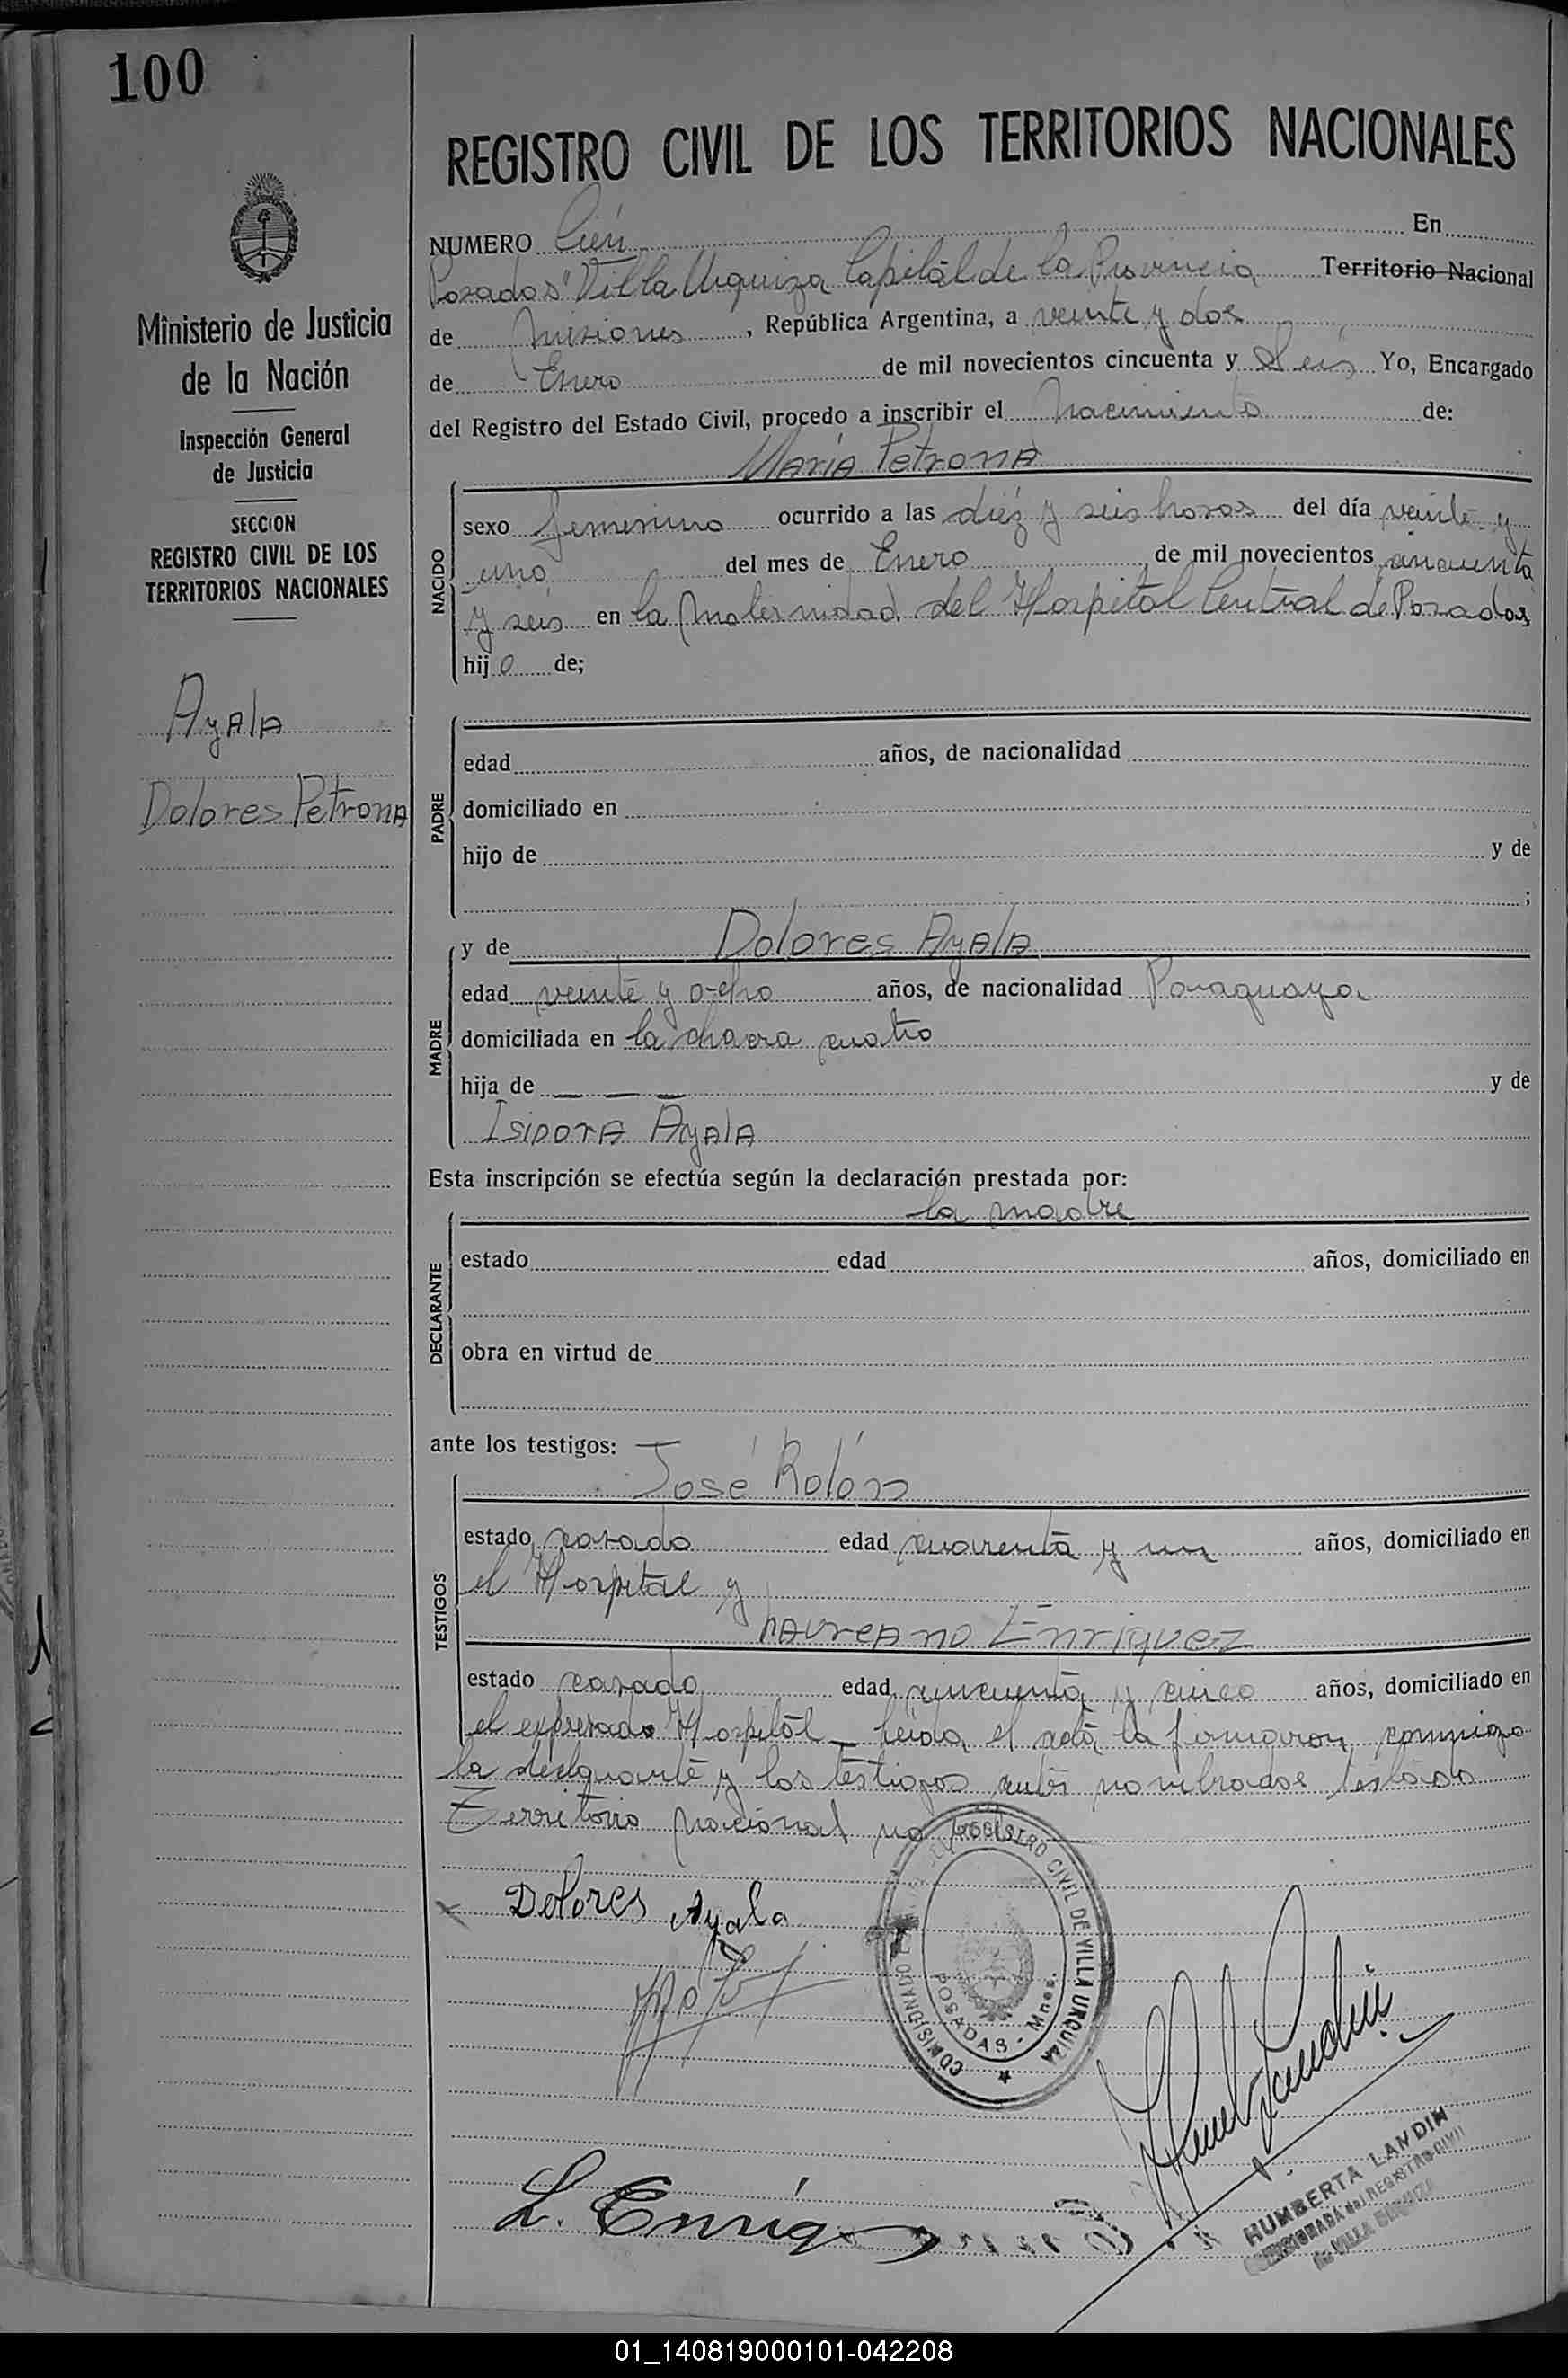 100
REGISTRO CIVIL DE LOS TERRITORIOS NACIONALES
NUMERO Cién En
Posadas "Villa Urquiza Capitál de la Provincia Territorio Nacional
de Misiones, República Argentina, a veinte y dos
de Enero de mil novecientos cincuenta y Seis Yo, Encargado
del Registro del Estado Civil, procedo a inscribir el nacimiento de:
María Petrona
Ministerio de Justicia
de la Nación
Inspección General
de Justicia
SECCION
REGISTRO CIVIL DE LOS
TERRITORIOS NACIONALES
Ayala
Dolores Petrona
NACIDO
sexo femenino ocurrido a las diéz y seis horas del día veinte y
uno del mes de Enero de mil novecientos cincuenta
y seis en la Maternidad del Hospital Central de Posadas
hijo de;
PADRE
edad años, de nacionalidad
domiciliado en
hijo de y de
;
MADRE
y de Dolores Ayala
edad veinte y ocho años, de nacionalidad Paraguaya
domiciliada en la chacra cuatro
hija de — — — y de
Isidora Ayala
Esta inscripción se efectúa según la declaración prestada por:
la madre
DECLARANTE
estado edad años, domiciliado en
obra en virtud de
ante los testigos:
TESTIGOS
José Rolón
estado casado edad cuarenta y un años, domiciliado en
el Hospital y
Laureano Enriquez
estado casado edad cincuenta y cinco años, domiciliado en
el expresado Hospitál_ Leida el acta la firmaron conmigo
la declarante y los testigos antes nombrados testado
Territorio Nacional no
Dolores Ayala
REGISTRO CIVIL DE VILLA URQUIZA
POSADAS - Mnes.
L. Enriq
HUMBERTA LANDIN
COMISIONADA del REGISTRO CIVIL
de VILLA URQUIZA
01_140819000101-042208